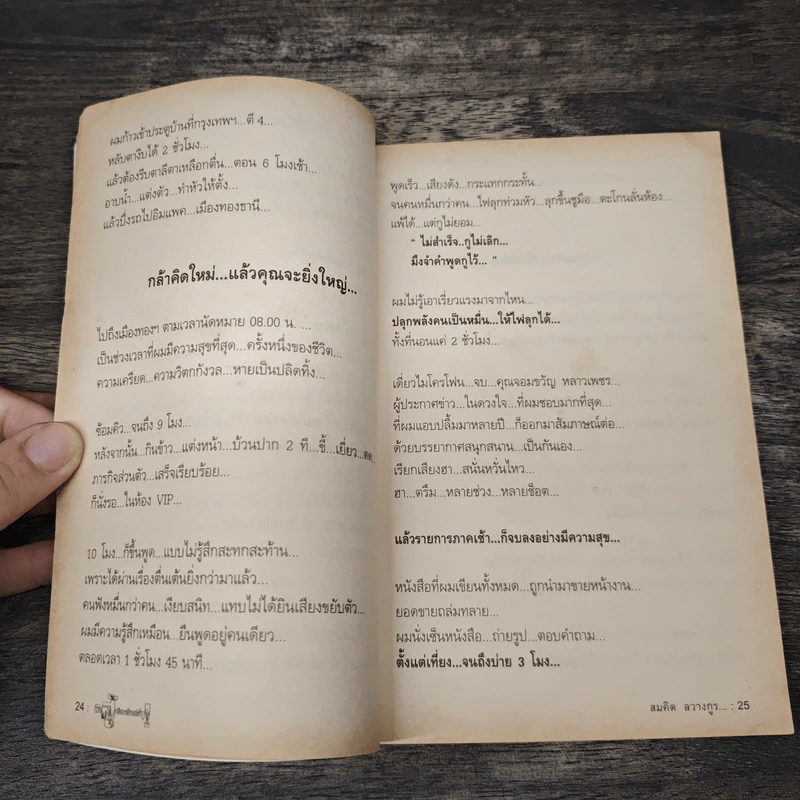 ผมก้าวเข้าประตูบ้านที่กรุงเทพฯ...ตี 4...
หลับตางีบได้ 2 ชั่วโมง...
แล้วต้องรีบตาลีตาเหลือกตื่น...ตอน 6 โมงเช้า...
อาบน้ำ...แต่งตัว...ทำหัวให้ตั้ง...
แล้วบึ่งรถไปอิมแพค...เมืองทองธานี...
กล้าคิดใหม่...แล้วคุณจะยิ่งใหญ่...
ไปถึงเมืองทองฯ ตามเวลานัดหมาย 08.00 น. ...
เป็นช่วงเวลาที่ผมมีความสุขที่สุด...ครั้งหนึ่งของชีวิต...
ความเครียด...ความวิตกกังวล...หายเป็นปลิดทิ้ง...
ซ้อมคิว...จนถึง 9 โมง...
หลังจากนั้น...กินข้าว...แต่งหน้า...บ้วนปาก 2 ที...ขี้...เยี่ยว...ตด...
ภารกิจส่วนตัว...เสร็จเรียบร้อย...
ก็นั่งรอ...ในห้อง VIP...
10 โมง...ก็ขึ้นพูด...แบบไม่รู้สึกสะทกสะท้าน...
เพราะได้ผ่านเรื่องตื่นเต้นยิ่งกว่ามาแล้ว...
คนฟังหมื่นกว่าคน...เงียบสนิท...แทบไม่ได้ยินเสียงขยับตัว...
ผมมีความรู้สึกเหมือน...ยืนพูดอยู่คนเดียว...
ตลอดเวลา 1 ชั่วโมง 45 นาที...
24 :
พูดเร็ว...เสียงดัง...กระแทกกระทั้น...
จนคนหมื่นกว่าคน...ไฟลุกท่วมหัว...ลุกขึ้นชูมือ...ตะโกนลั่นห้อง...
แพ้ได้...แต่กูไม่ยอม...
" ไม่สำเร็จ..กูไม่เลิก...
มึงจำคำพูดกูไว้... "
ผมไม่รู้เอาเรี่ยวแรงมาจากไหน...
ปลุกพลังคนเป็นหมื่น...ให้ไฟลุกได้...
ทั้งที่นอนแค่ 2 ชั่วโมง...
เดี่ยวไมโครโฟน...จบ...คุณจอมขวัญ หลาวเพชร...
ผู้ประกาศข่าว...ในดวงใจ...ที่ผมชอบมากที่สุด...
ที่ผมแอบปลื้มมาหลายปี...ก็ออกมาสัมภาษณ์ต่อ...
ด้วยบรรยากาศสนุกสนาน...เป็นกันเอง...
เรียกเสียงฮา...สนั่นหวั่นไหว...
ฮา...ตรึม...หลายช่วง...หลายช็อต...
แล้วรายการภาคเช้า...ก็จบลงอย่างมีความสุข...
หนังสือที่ผมเขียนทั้งหมด...ถูกนำมาขายหน้างาน...
ยอดขายถล่มทลาย...
ผมนั่งเซ็นหนังสือ...ถ่ายรูป...ตอบคำถาม...
ตั้งแต่เที่ยง...จนถึงบ่าย 3 โมง...
สมคิด ลวางกูร... : 25